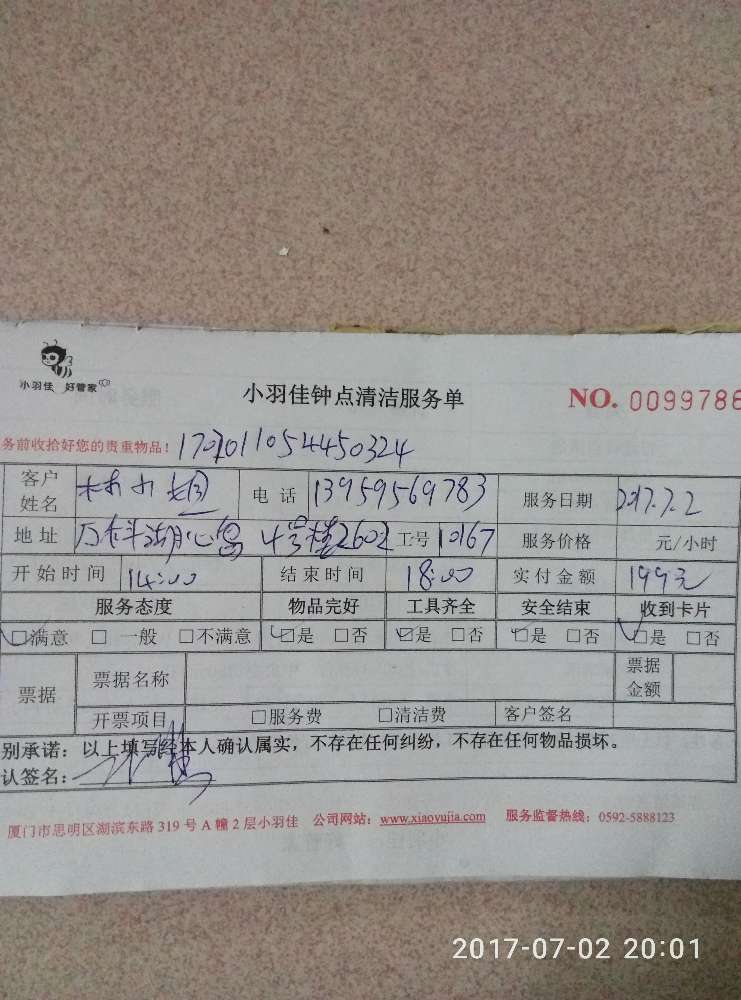 小羽佳 好管家
小羽佳钟点清洁服务单
NO. 0099786
务前收拾好您的贵重物品！
客户姓名 电话 13959569783 服务日期 2017.7.2
地址 万科湖心岛 4号楼2602 工号 10167 服务价格 元/小时
开始时间 14:00 结束时间 18:00 实付金额 199元
服务态度 物品完好 工具齐全 安全结束 收到卡片
☑满意 □一般 □不满意 ☑是 □否 ☑是 □否 ☑是 □否 ☑是 □否
票据 票据名称 票据金额
开票项目 □服务费 □清洁费 客户签名
别承诺：以上填写经本人确认属实，不存在任何纠纷，不存在任何物品损坏。
认签名：
厦门市思明区湖滨东路 319 号 A 幢 2 层小羽佳 公司网站：www.xiaoyujia.com 服务监督热线：0592-5888123
2017-07-02 20:01